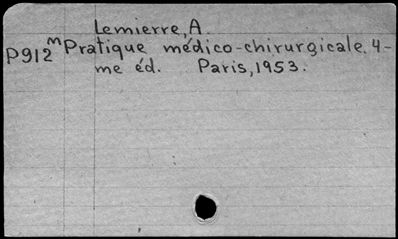 Lemierre, A.
P912m Pratique médico-chirurgicale. 4-
me éd. Paris, 1953.